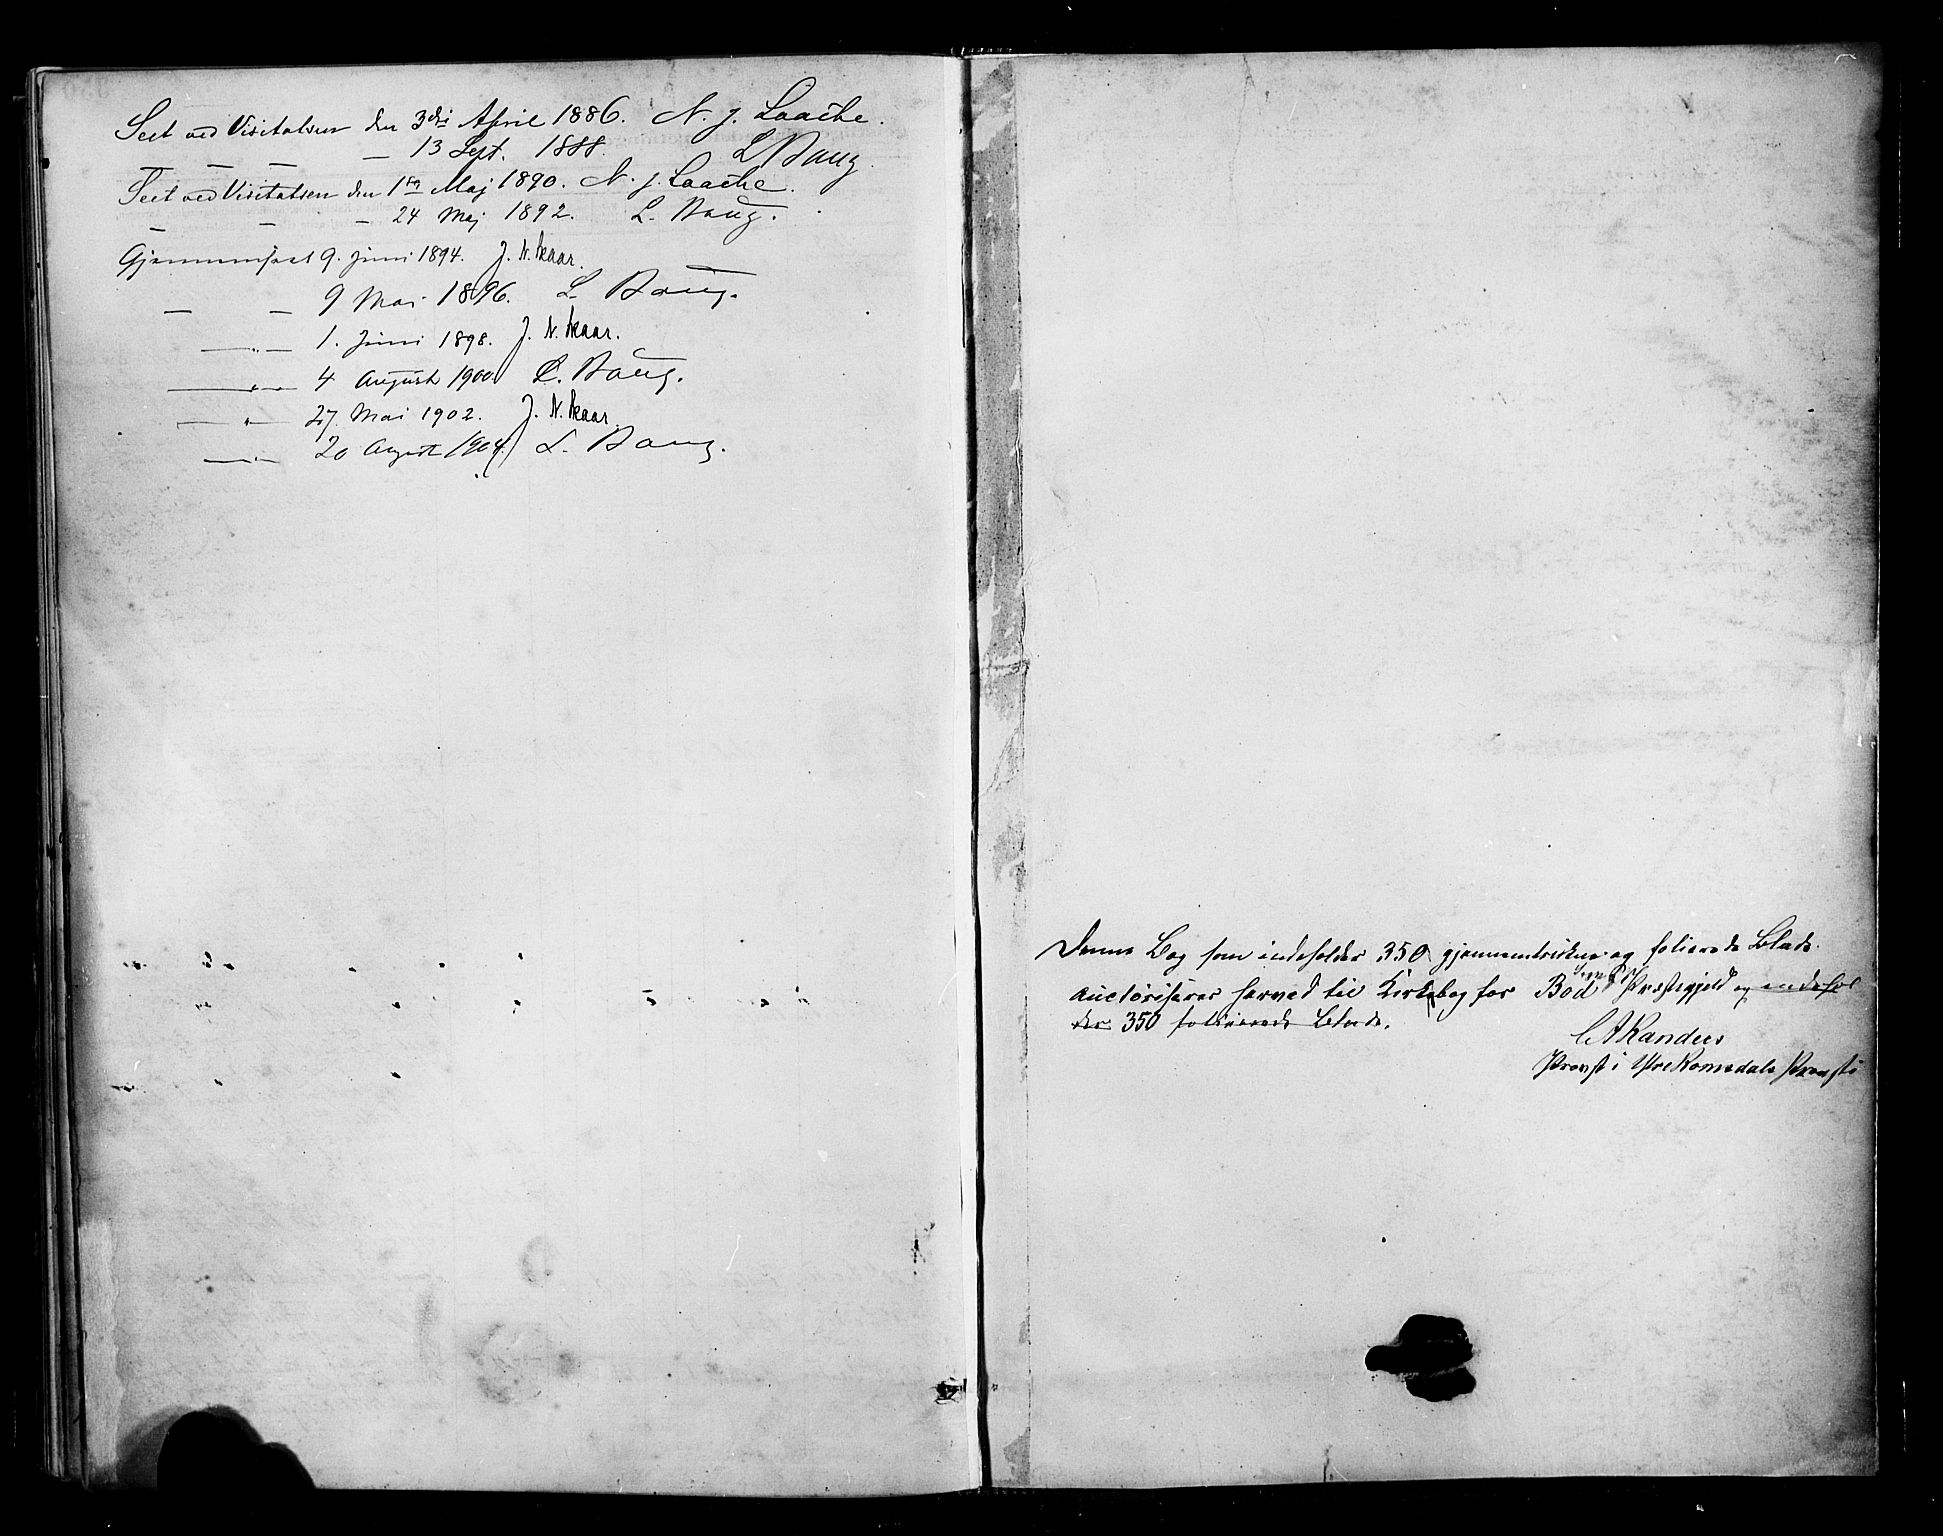 Seet ved Visitatsen den 3die April 1886. N. J. Laache.
— — — 13 Sept. 1888. L Daug
Seet ved Visitatsen den 1ste Maj 1890. N. J. Laache.
— — — 24 Maj 1892. L. Daug.
Gjennemseet 9. Juni 1894. J. N. Skaar.
— — 9 Mai 1896. L. Daug.
— „ — 1. Juni 1898. J. N. Skaar.
— „ — 4 August 1900. L. Daug.
— „ — 27. Mai 1902. J. N. Skaar.
— „ — 20 August 1904. L. Daug.
Denne Bog som indeholder 350 gjennemtrukne og folierede Blade
auctoriseres herved til Kirkebog for Bod Præstegjeld og indehol
der 350 folierede Blade.
C A Randers
Provst i Ytre Romsdals Provsti